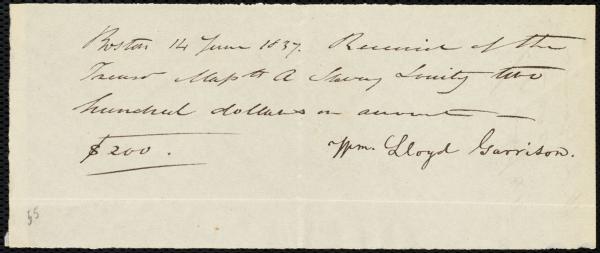 Boston 14 June 1837. Received of the
Treasr Masstts A Slavery Society two
hundred dollars on account —
$200. Wm. Lloyd Garrison.
55